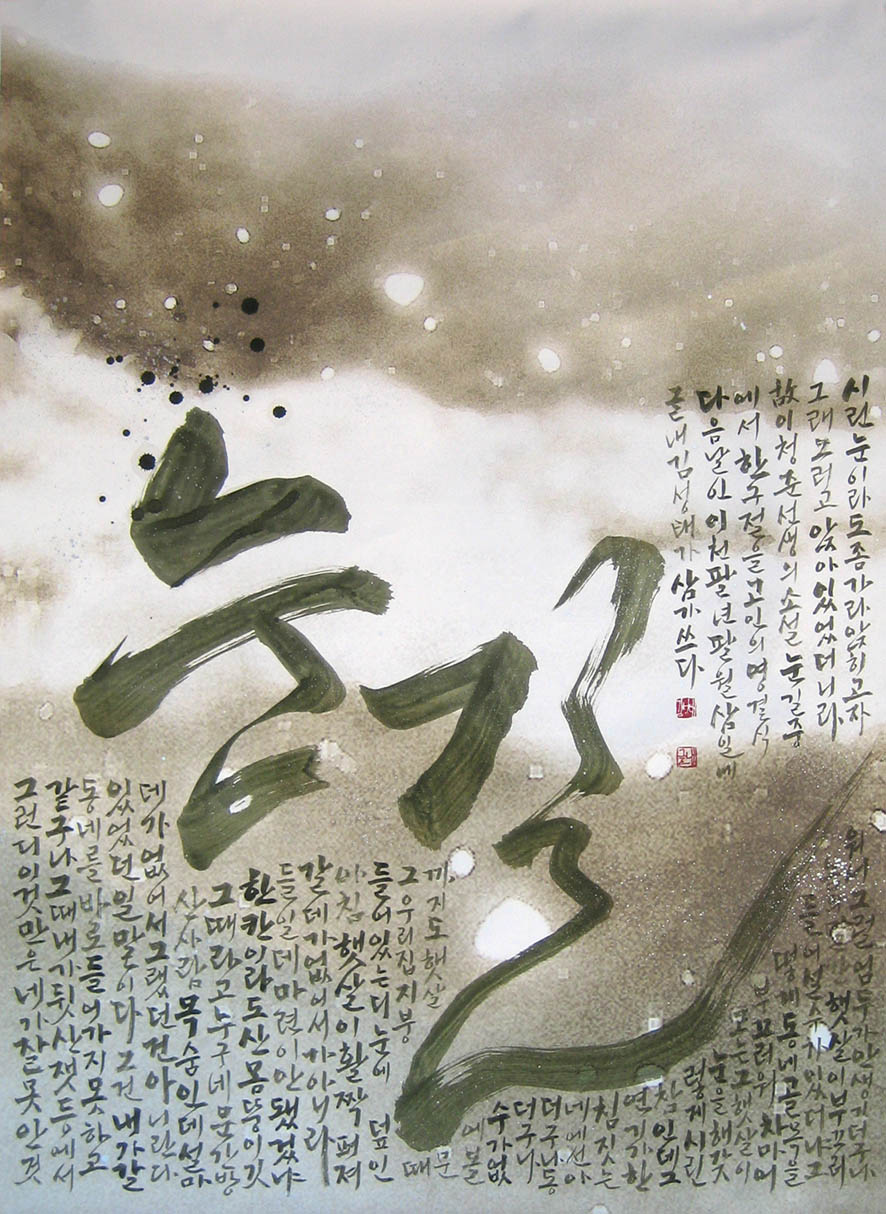 눈길
그런디이것만은네가잘못안것
같구나그때내가뒷산잿등에서
동네를바로들어가지못하고
있었던일말이다그건내가갈
데가없어서그랬던건아니란다
산사람목숨인데설마
그때라고누구네문간방
한칸이라도산몸뚱이깃
들일데마련이안됐겄냐
갈데가없어서가아니라
아침햇살이활짝퍼져
들어있는디눈에덮인
그우리집지붕
까지도햇살
때
문
에볼
수가없
더구니
더구나동
네에선아
침짓는
연기가한
참인데그
렇게시린
눈을해갖
고는그햇살이
부끄러워차마어
떻게동네골목을
들어설수가있더냐그
햇살이부끄러
워서그럴엄두가안생기더구나
시린눈이라도좀가라앉히고자
그래그러고앉아있었더니라
故이청준선생의소설눈길중
에서한구절을고인의영결식
다음날인이천팔년팔월삼일에
글내김성태가삼가쓰다